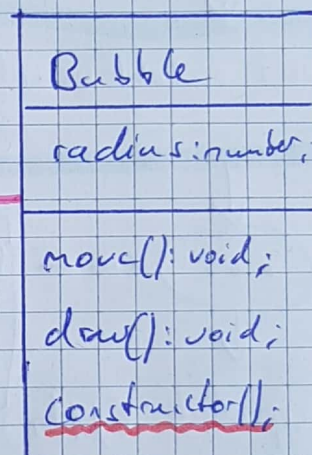 Bubble
radius:number;
move(): void;
draw(): void;
constructor();